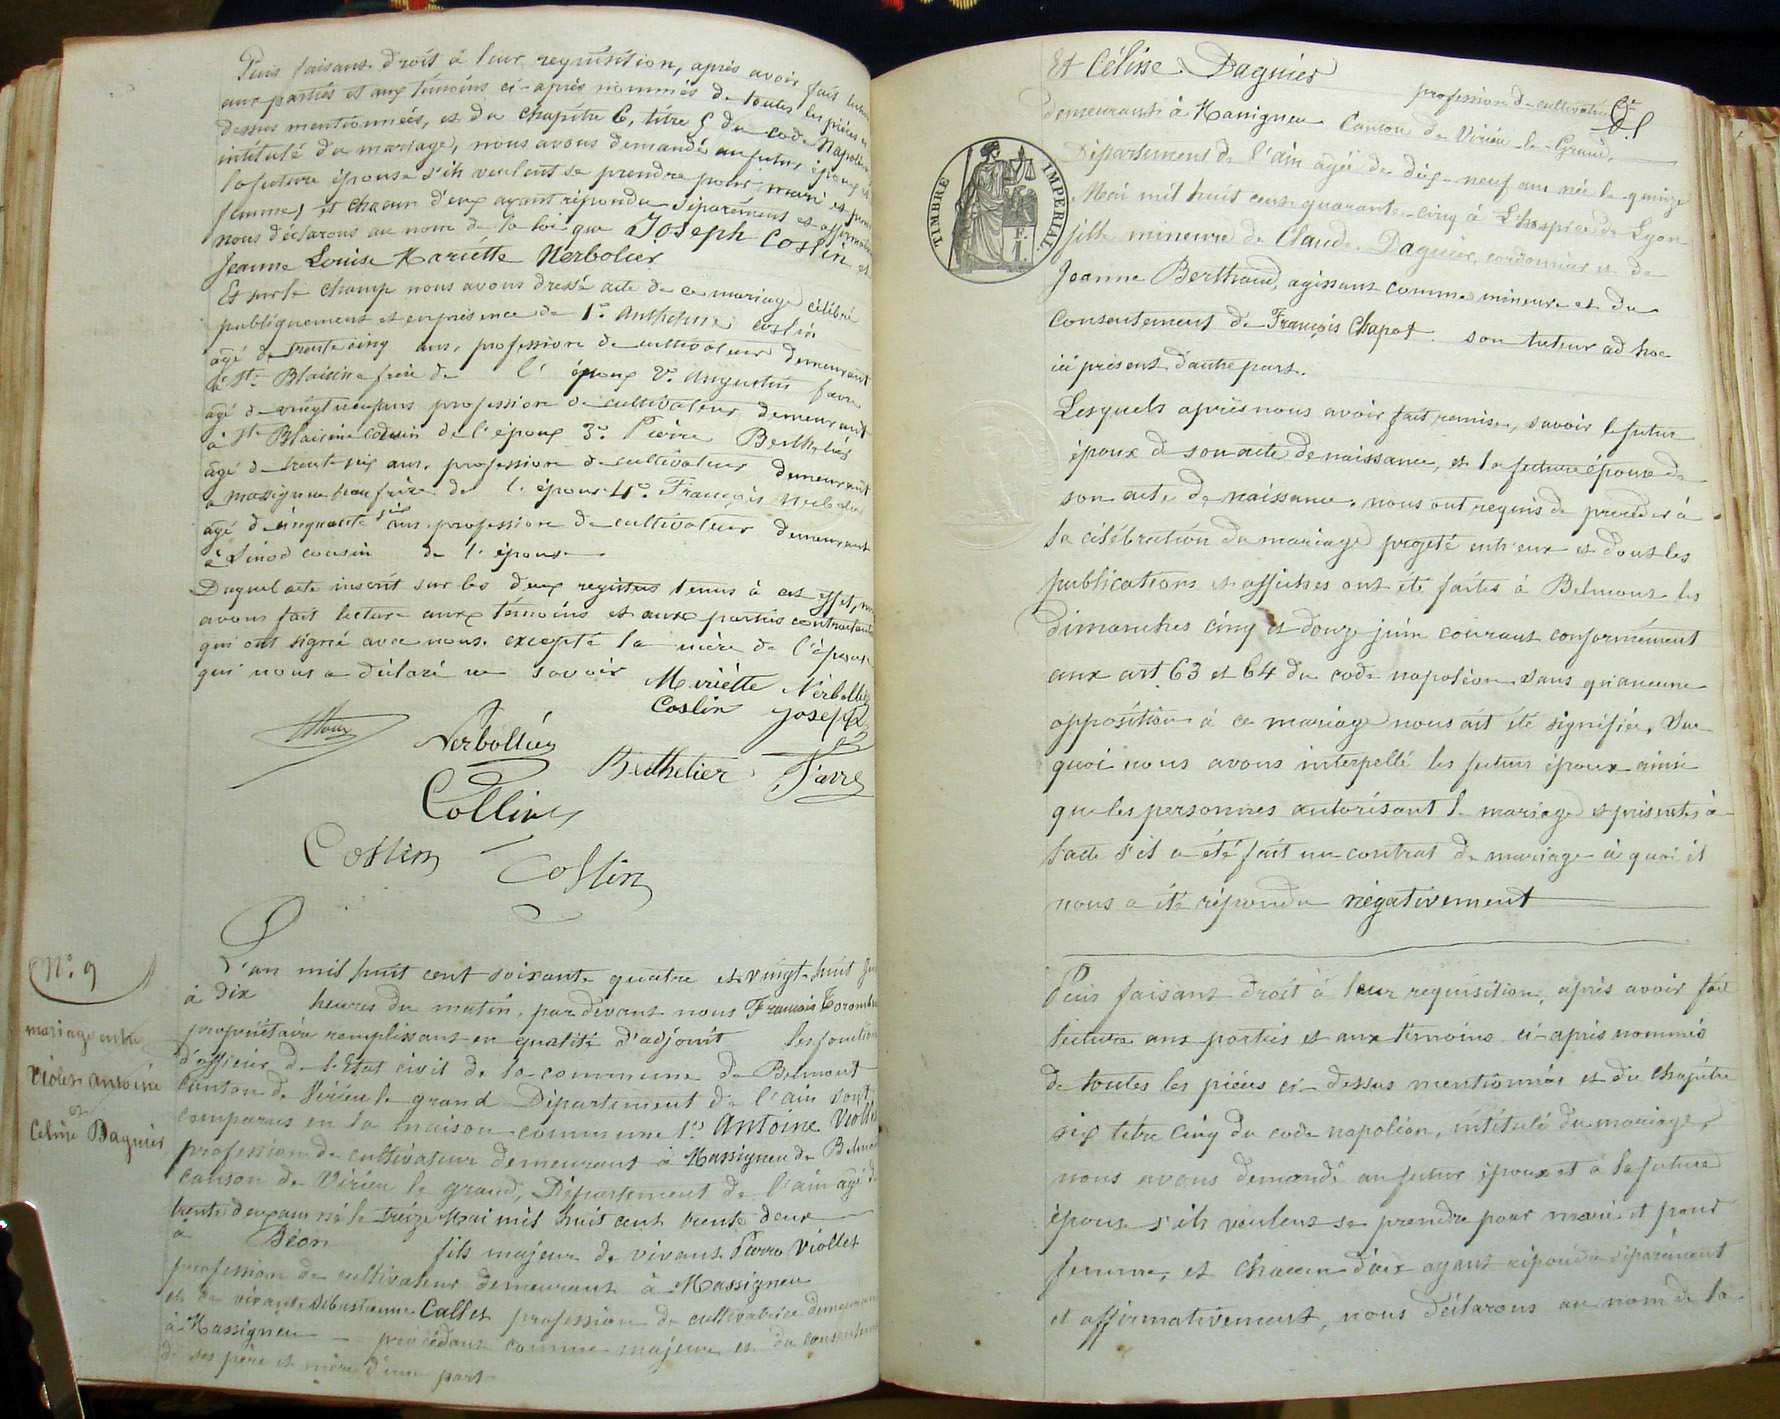 Puis faisant droit à leur requisition, après avoir fait lecture
aux parties et aux témoins ci-après nommés de toutes les pièces ci
dessus mentionnées, et du chapitre 6, titre 5 du code Napoléon
intitulé du mariage, nous avons demandé au futur époux et
la future épouse s'ils veulent se prendre pour mari et pour
femme, et chacun d'eux ayant répondu séparément et affirmative
nous déclarons au nom de la loi que Joseph Coslin et
Jeanne Louise Mariette Nerbolier
Et sur le champ nous avons dressé acte de ce mariage célébré
publiquement et en présence de 1o. Coslin
agé de trente cinq ans, profession de cultivateur demeurant
à St. Blaisine frère de l'époux 2o. Augustin favre
agé de vingt neuf ans profession de cultivateur demeurant
à St. Blaisine cousin de l'époux 3o. Pierre Berthelier
agé de trente six ans, profession de cultivateur demeurant
à massigneu beau frère de l'épouse 4o. François Nerbolier
agé de cinquante six ans profession de cultivateur demeurant
à Linod cousin de l'épouse
Duquel acte inscrit sur les deux registres tenus à cet effet, nous
avons fait lecture aux témoins et aux parties contractantes
qui ont signé avec nous. excepté la mère de l'épouse
qui nous a déclaré ne savoir
Mériètte Nèrbollier
Coslin Joseph
Nerbollier
Berthelier Favre
Collin
Costin Costin
No. 9
mariage entre
Violet antoine
et
Celine Dagnier
L'an mil huit cent soixante quatre et vingt-huit Juin
à dix heures du matin, par devant nous Francois
propriétaire remplissant en qualité d'adjoint les fonctions
d'officier de l'Etat civil de la commune de Belmont
Canton de Virieu le grand Département de l'ain sont
comparus en la maison commune 1o. Antoine Viollet
profession de cultivateur demeurant à Massigneu de Belmont
canton de Virieu le grand, Département de l'ain agé de
trente deux ans né le treize Mai mil huit cent trente deux
à Béon fils majeur de vivant Pierre Viollet
profession de cultivateur demeurant à Massigneu
et de vivante Sébastienne Callet profession de cultivatrice demeurant
à Massigneu procédant comme majeur et du consentement
de ses père et mère d'une part
Et Célisse Dagnier
profession de cultivatrice
demeurant à Massigneu Canton de Virieu-le-Grand,
Département de l'ain agée de dix-neuf ans née le quinze
Mai mil huit cent quarante-cinq à L'hospice de Lyon
fille mineure de Claude Dagnier, cordonnier et de
Jeanne Berthaud, agissant comme mineure et du
consentement de François Chapot son tuteur ad hoc
ici présent d'autre part.
TIMBRE IMPERIAL
Lesquels après nous avoir fait remise, savoir le futur
époux de son acte de naissance, et la future épouse de
son acte de naissance, nous ont requis de procéder à
la célébration du mariage projeté entr'eux et dont les
publications et affiches ont été faites à Belmont les
dimanches cinq et douze juin courant conformément
aux art 63 et 64 du code napoléon sans qu'aucune
opposition à ce mariage nous ait été signifiée. Sur
quoi nous avons interpellé les futurs époux ainsi
que les personnes autorisant le mariage et présentes à
l'acte s'il a été fait un contrat de mariage à quoi il
nous a été répondu négativement
Puis faisant droit à leur requisition, après avoir fait
lecture aux parties et aux témoins ci-après nommés
de toutes les pièces ci-dessus mentionnées et du chapitre
six titre cinq du code napoléon, intitulé du mariage,
nous avons demandé au futur époux et à la future
épouse s'ils veulent se prendre pour mari et pour
femme, et chacun d'eux ayant répondu séparément
et affirmativement, nous déclarons au nom de la